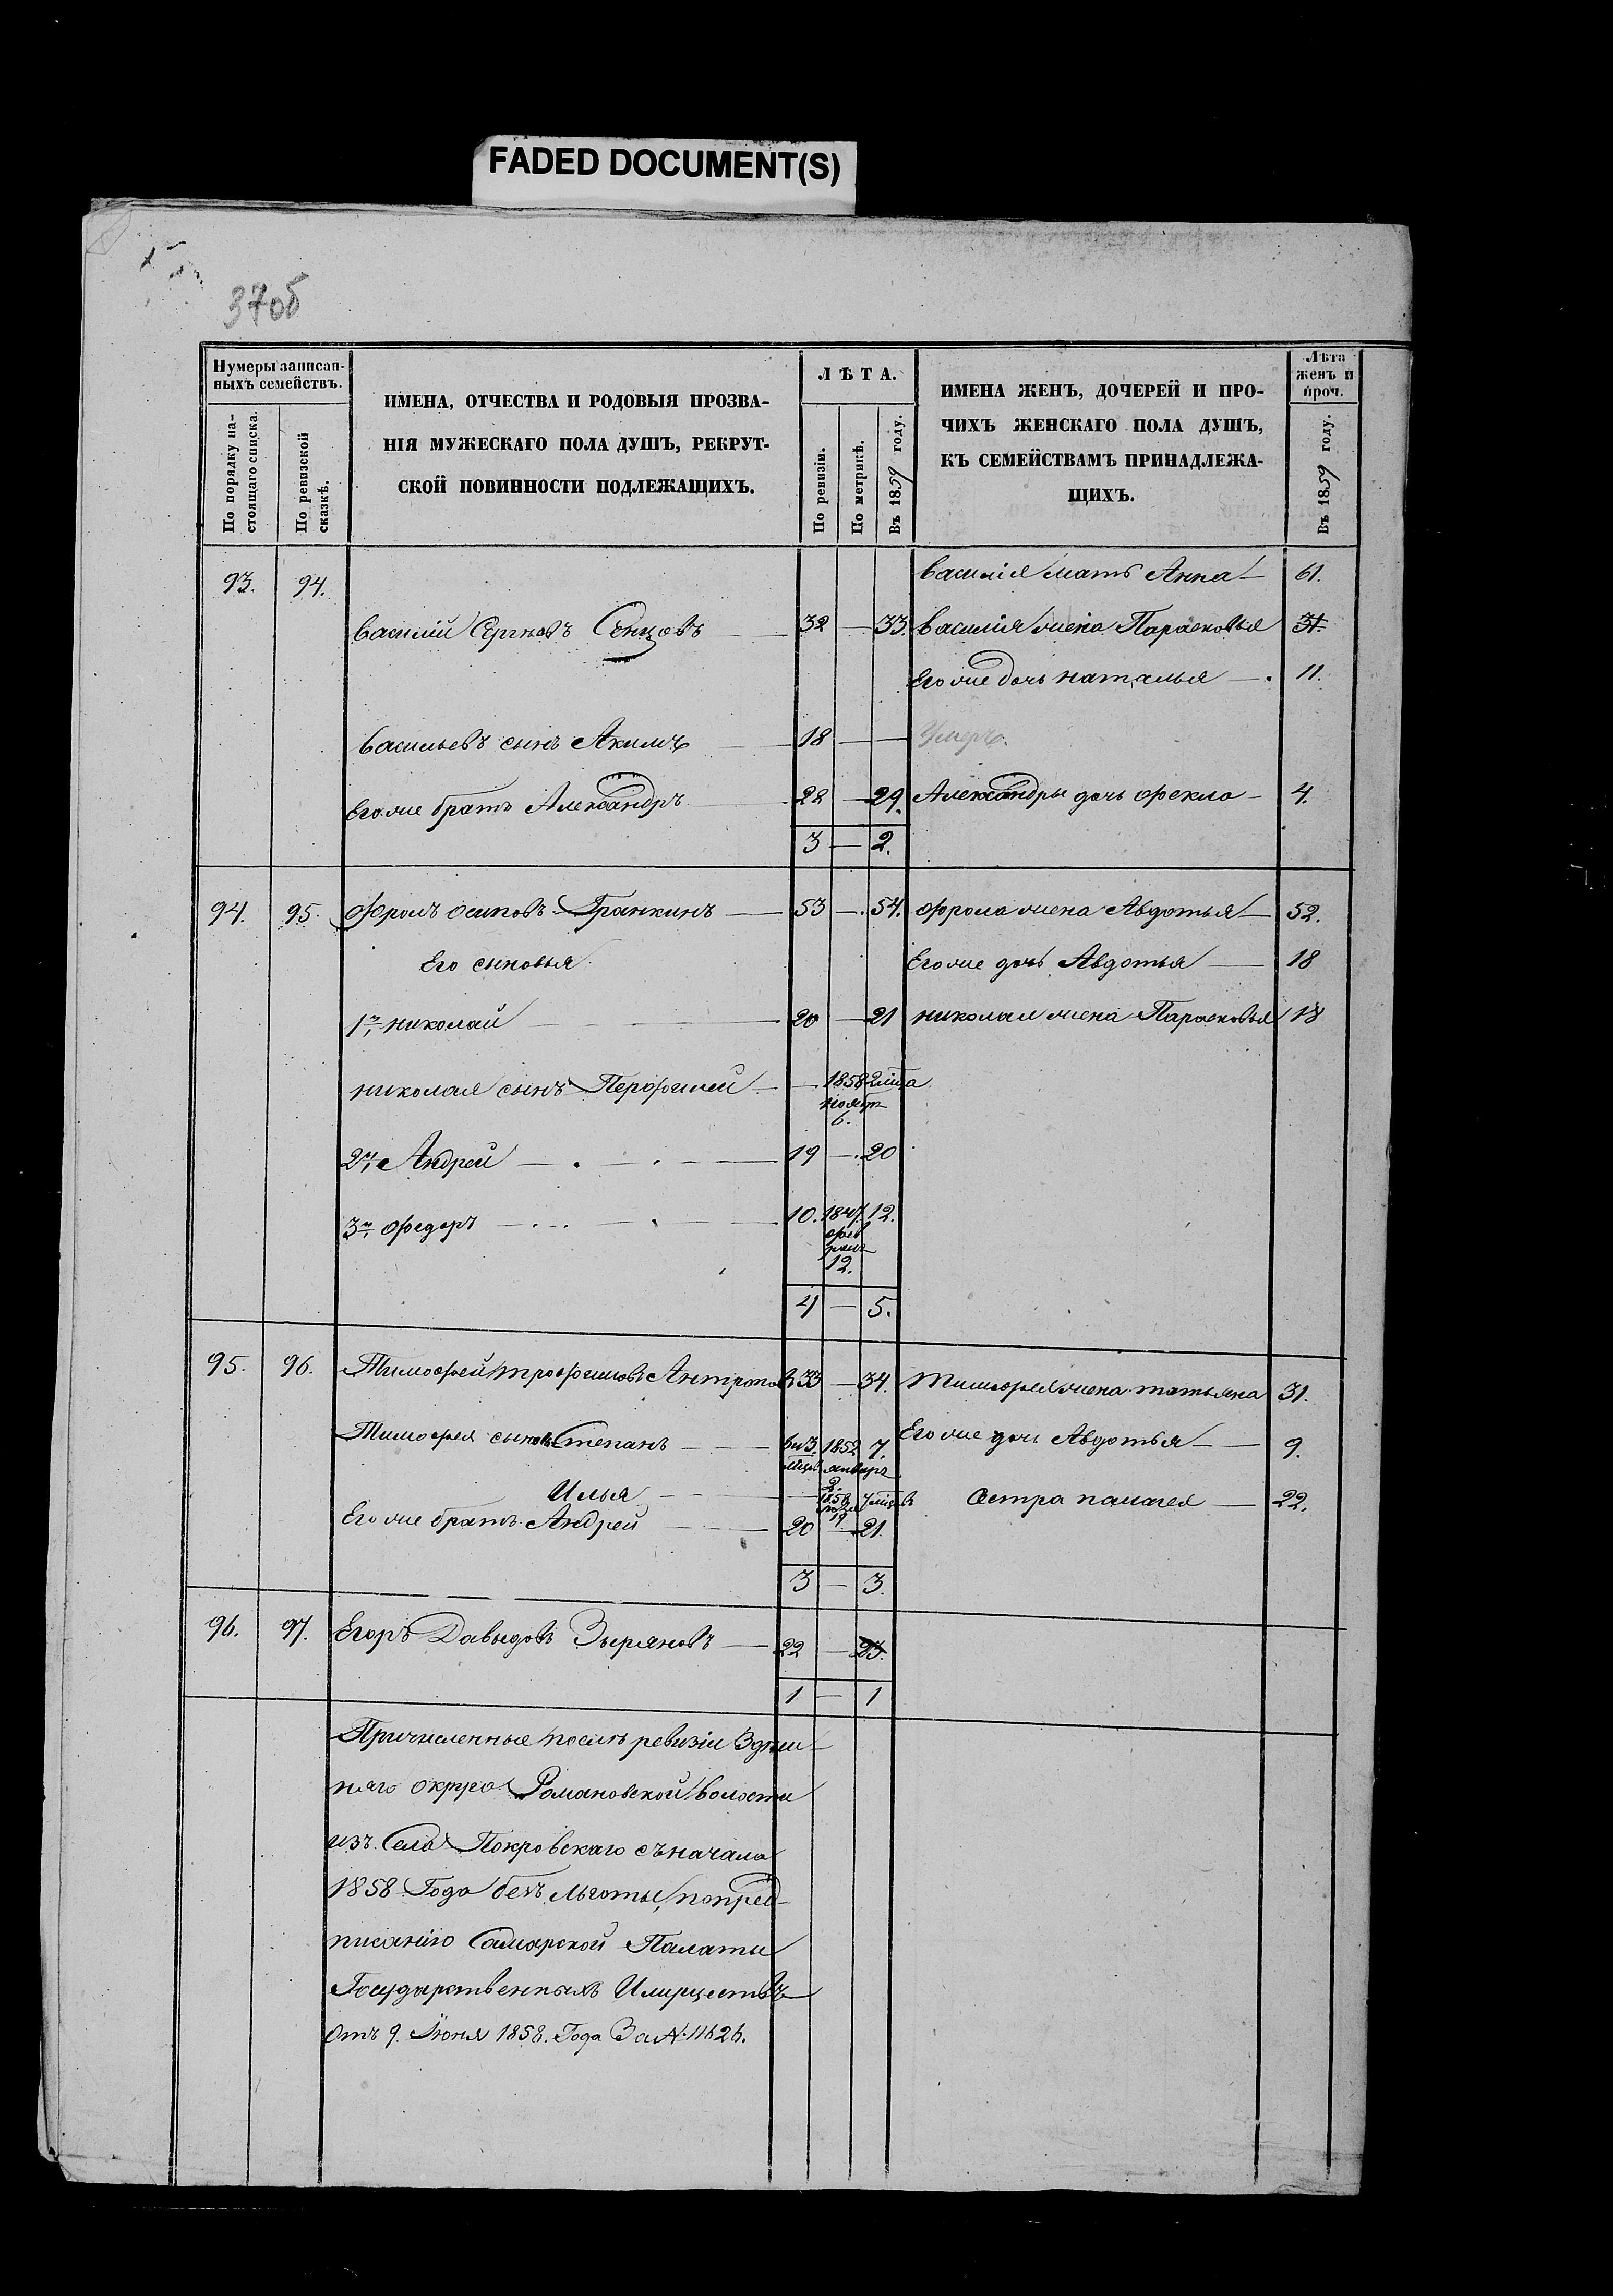 FADED DOCUMENT(S)
37об
Нумеры записан-
ныхъ семействъ.
По порядку на-
стоящаго списка.
По ревизской
сказкѣ.
ИМЕНА, ОТЧЕСТВА И РОДОВЫЯ ПРОЗВА-
НІЯ МУЖЕСКАГО ПОЛА ДУШЪ, РЕКРУТ-
СКОЙ ПОВИННОСТИ ПОДЛЕЖАЩИХЪ.
ЛѢТА.
По ревизіи.
По метрикѣ.
Въ 1859 году.
ИМЕНА ЖЕНЪ, ДОЧЕРЕЙ И ПРО-
ЧИХЪ ЖЕНСКАГО ПОЛА ДУШЪ,
КЪ СЕМЕЙСТВАМЪ ПРИНАДЛЕЖА-
ЩИХЪ.
Лѣта
женъ и
проч.
Въ 1859 году.
93. 94. Василія мать Анна — 61.
Василій Сергѣевъ Сенцовъ — 32 — 33. Василія жена Парасковья 31.
Его же дочь Наталья — 11.
Васильевъ сынъ Акимъ — 18 — — Умеръ.
Его же братъ Александръ 28 — 29. Александры дочь Фекла — 4.
3 — 2.
94. 95. Фролъ Осиповъ Гранкинъ — 53 — 54. Фрола жена Авдотья — 52.
Его сыновья Его же дочь Авдотья — 18
1й, Николай — 20 — 21 Николая жена Парасковья 18
Николая сынъ Перфилей — — 1858 2 мѣца
ноябр
6.
2й, Андрей — 19 — 20
3й, Федоръ — 10. 1847. 12.
фев
раля
12.
4 — 5.
95. 96. Тимофей Трофимовъ Антроповъ 33 — 34. Тимофея жена Татьяна 31.
Тимофея сынъ Степанъ — 6 и 3. 1852 7. Его же дочь Авдотья — 9.
мѣцъ январь
2.
Илья — — 1858 Сестра Палагея — 22.
19
Его же братъ Андрей — 20 — 21.
3 — 3.
96. 97. Егоръ Давыдовъ Зыряновъ — 22 — 23.
1 — 1
Причисленные послѣ ревизіи Здѣш-
няго округа Романовской волости
изъ Села Покровскаго съ начала
1858 Года безъ Льготы, по пред-
писанію Самарской Палаты
Государственныхъ Имуществъ
Отъ 9. Іюня 1858. Года За № 11626.